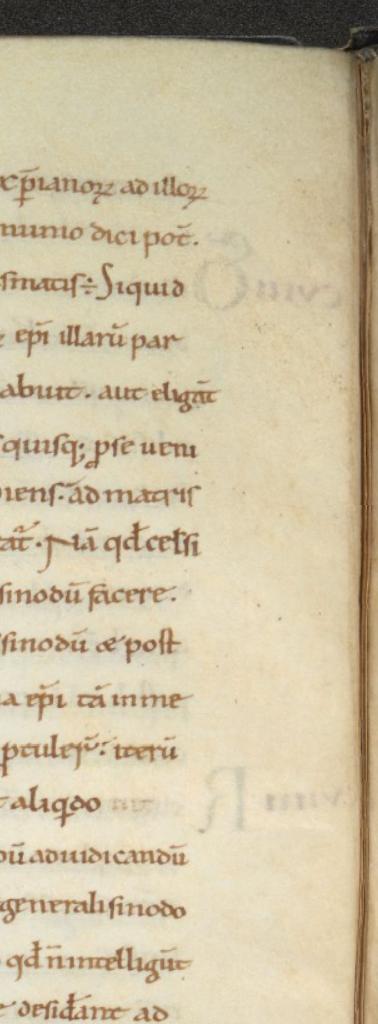 xp̄ianoꝝ ad illoꝝ
nunio dici pot̄.
smatis÷ Siquid
ep̄i illarū par
abuit. aut eligāt
squisq; ꝑse ueni
iens. ad matris
tāt. Nā qđ celsi
sinodū facere.
sinodū æ post
a ep̄i tā in me
ꝑtuler̄. iterū
aliqdo
ū adiudicandū
generali sinodo
qđ n̄ intelligūt
desiđant ad